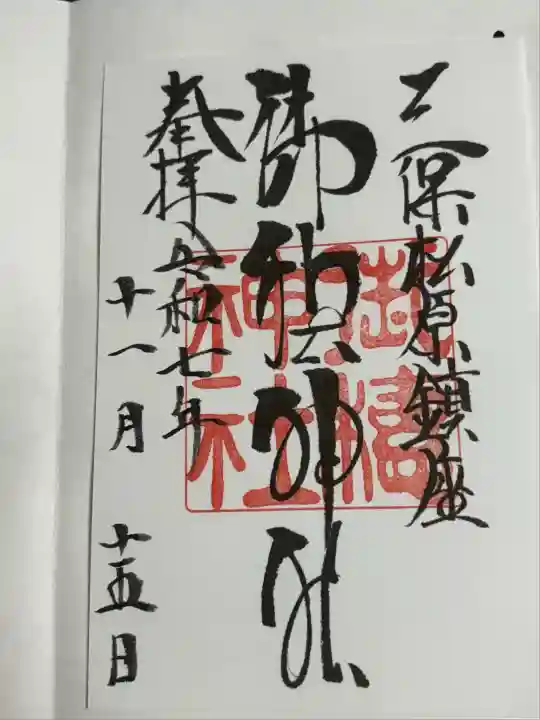 三保松原鎮座
御穂神社
奉拝 令和七年
十一月 十五日
神社